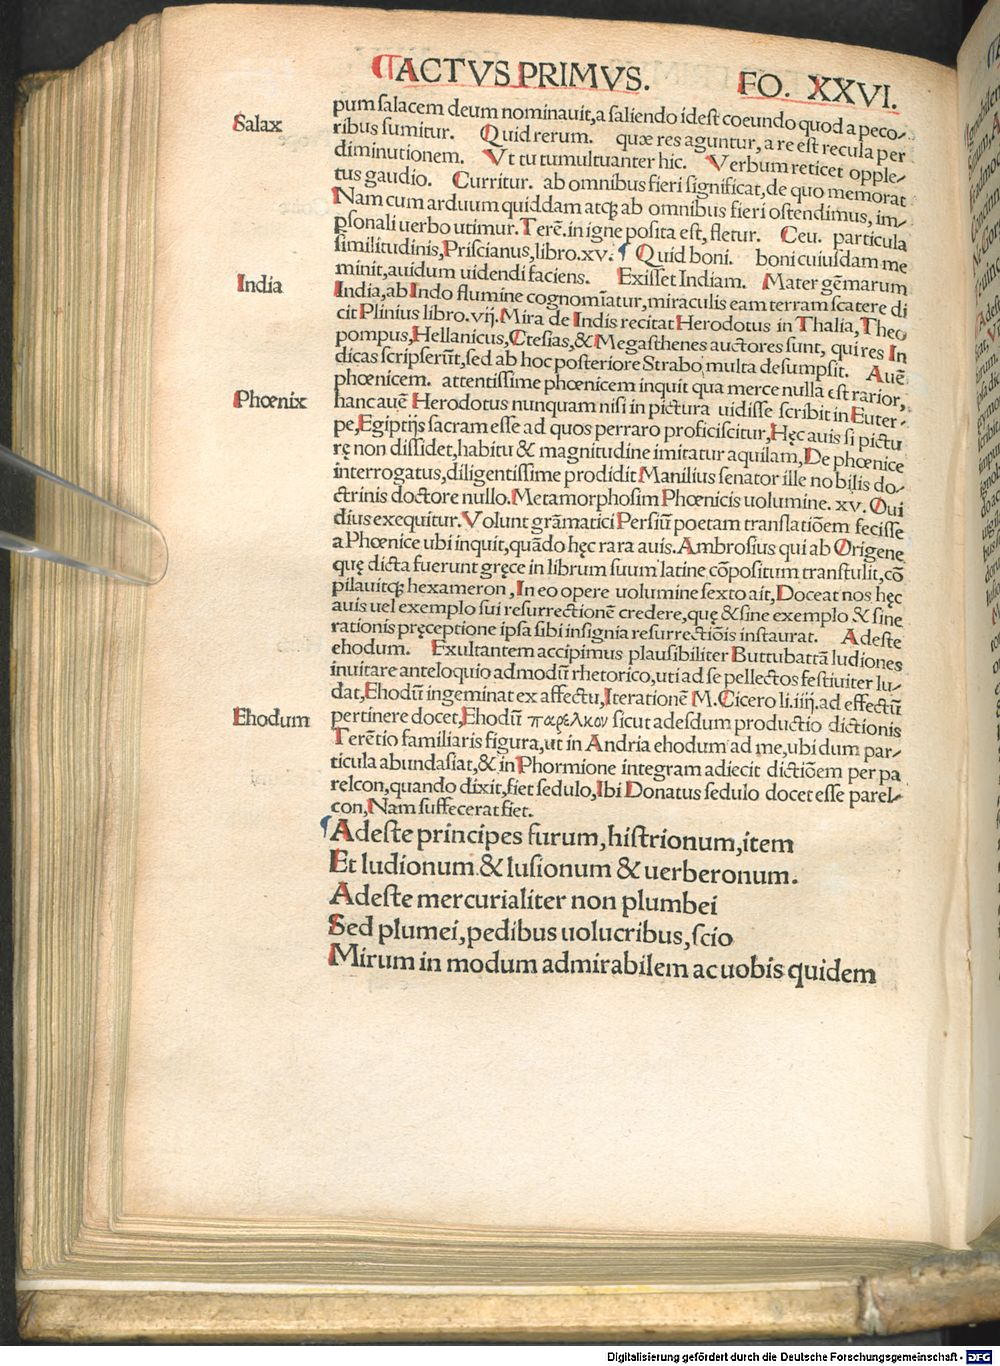 ¶ACTVS PRIMVS. FO. XXVI.
pum salacem deum nominauit,a saliendo idest coeundo quod a peco-
Salax
ribus sumitur. Quid rerum. quæ res aguntur, a re est recula per
diminutionem. Vt tu tumultuanter hic. Verbum reticet opple-
tus gaudio. Curritur. ab omnibus fieri significat,de quo memorat
Nam cum arduum quiddam atqꝫ ab omnibus fieri ostendimus, im-
ꝑsonali uerbo utimur. Terē. in igne posita est, fletur. Ceu. particula
similitudinis,Priscianus,libro.xv. ¶ Quid boni. boni cuiusdam me
minit,auidum uidendi faciens. Exisset Indiam. Mater gēmarum
India
India,ab Indo flumine cognomīatur,miraculis eam terram scatere di
cit Plinius libro.vij.Mira de Indis recitat Herodotus in Thalia, Theo
pompus,Hellanicus,Ctesias,& Megasthenes auctores sunt, qui res In
dicas scripserūt,sed ab hoc posteriore Strabo multa desumpsit. Auē
phœnicem. attentissime phœnicem inquit qua merce nulla est rarior,
Phœnix
hanc auē Herodotus nunquam nisi in pictura uidisse scribit in Euter-
pe,Egiptijs sacram esse ad quos perraro proficiscitur,Hęc auis si pictu
rę non dissidet,habitu & magnitudine imitatur aquilam,De phœnice
interrogatus,diligentissime prodidit Manilius senator ille nobilis do-
ctrinis doctore nullo.Metamorphosim Phœnicis uolumine. xv. Oui
dius exequitur.Volunt grāmatici Persiū poetam translatiōem fecisse
a Phœnice ubi inquit,quādo hęc rara auis. Ambrosius qui ab Origene
quę dicta fuerunt gręce in librum suum latine cōpositum transtulit,cō
pilauitqꝫ hexameron,In eo opere uolumine sexto ait, Doceat nos hęc
auis uel exemplo sui resurrectionē credere,quę & sine exemplo & sine
rationis pręceptione ipsa sibi insignia resurrectiōis instaurat. Adeste
ehodum. Exultantem accipimus plausibiliter Buttubattā ludiones
inuitare anteloquio admodū rhetorico,uti ad se pellectos festiuiter lu-
dat,Ehodū ingeminat ex affectu,Iterationē M.Cicero li.iiij.ad effectū
Ehodum
pertinere docet,Ehodū παρελκον sicut adesdum productio dictionis
Terētio familiaris figura,ut in Andria ehodum ad me,ubi dum par-
ticula abundasiat,& in Phormione integram adiecit dictiōem per pa
relcon,quando dixit,fiet sedulo,Ibi Donatus sedulo docet esse parel-
con,Nam suffecerat fiet.
¶Adeste principes furum,histrionum,item
Et ludionum & lusionum & uerberonum.
Adeste mercurialiter non plumbei
Sed plumei,pedibus uolucribus,scio
Mirum in modum admirabilem ac uobis quidem
Digitalisierung gefördert durch die Deutsche Forschungsgemeinschaft - DFG